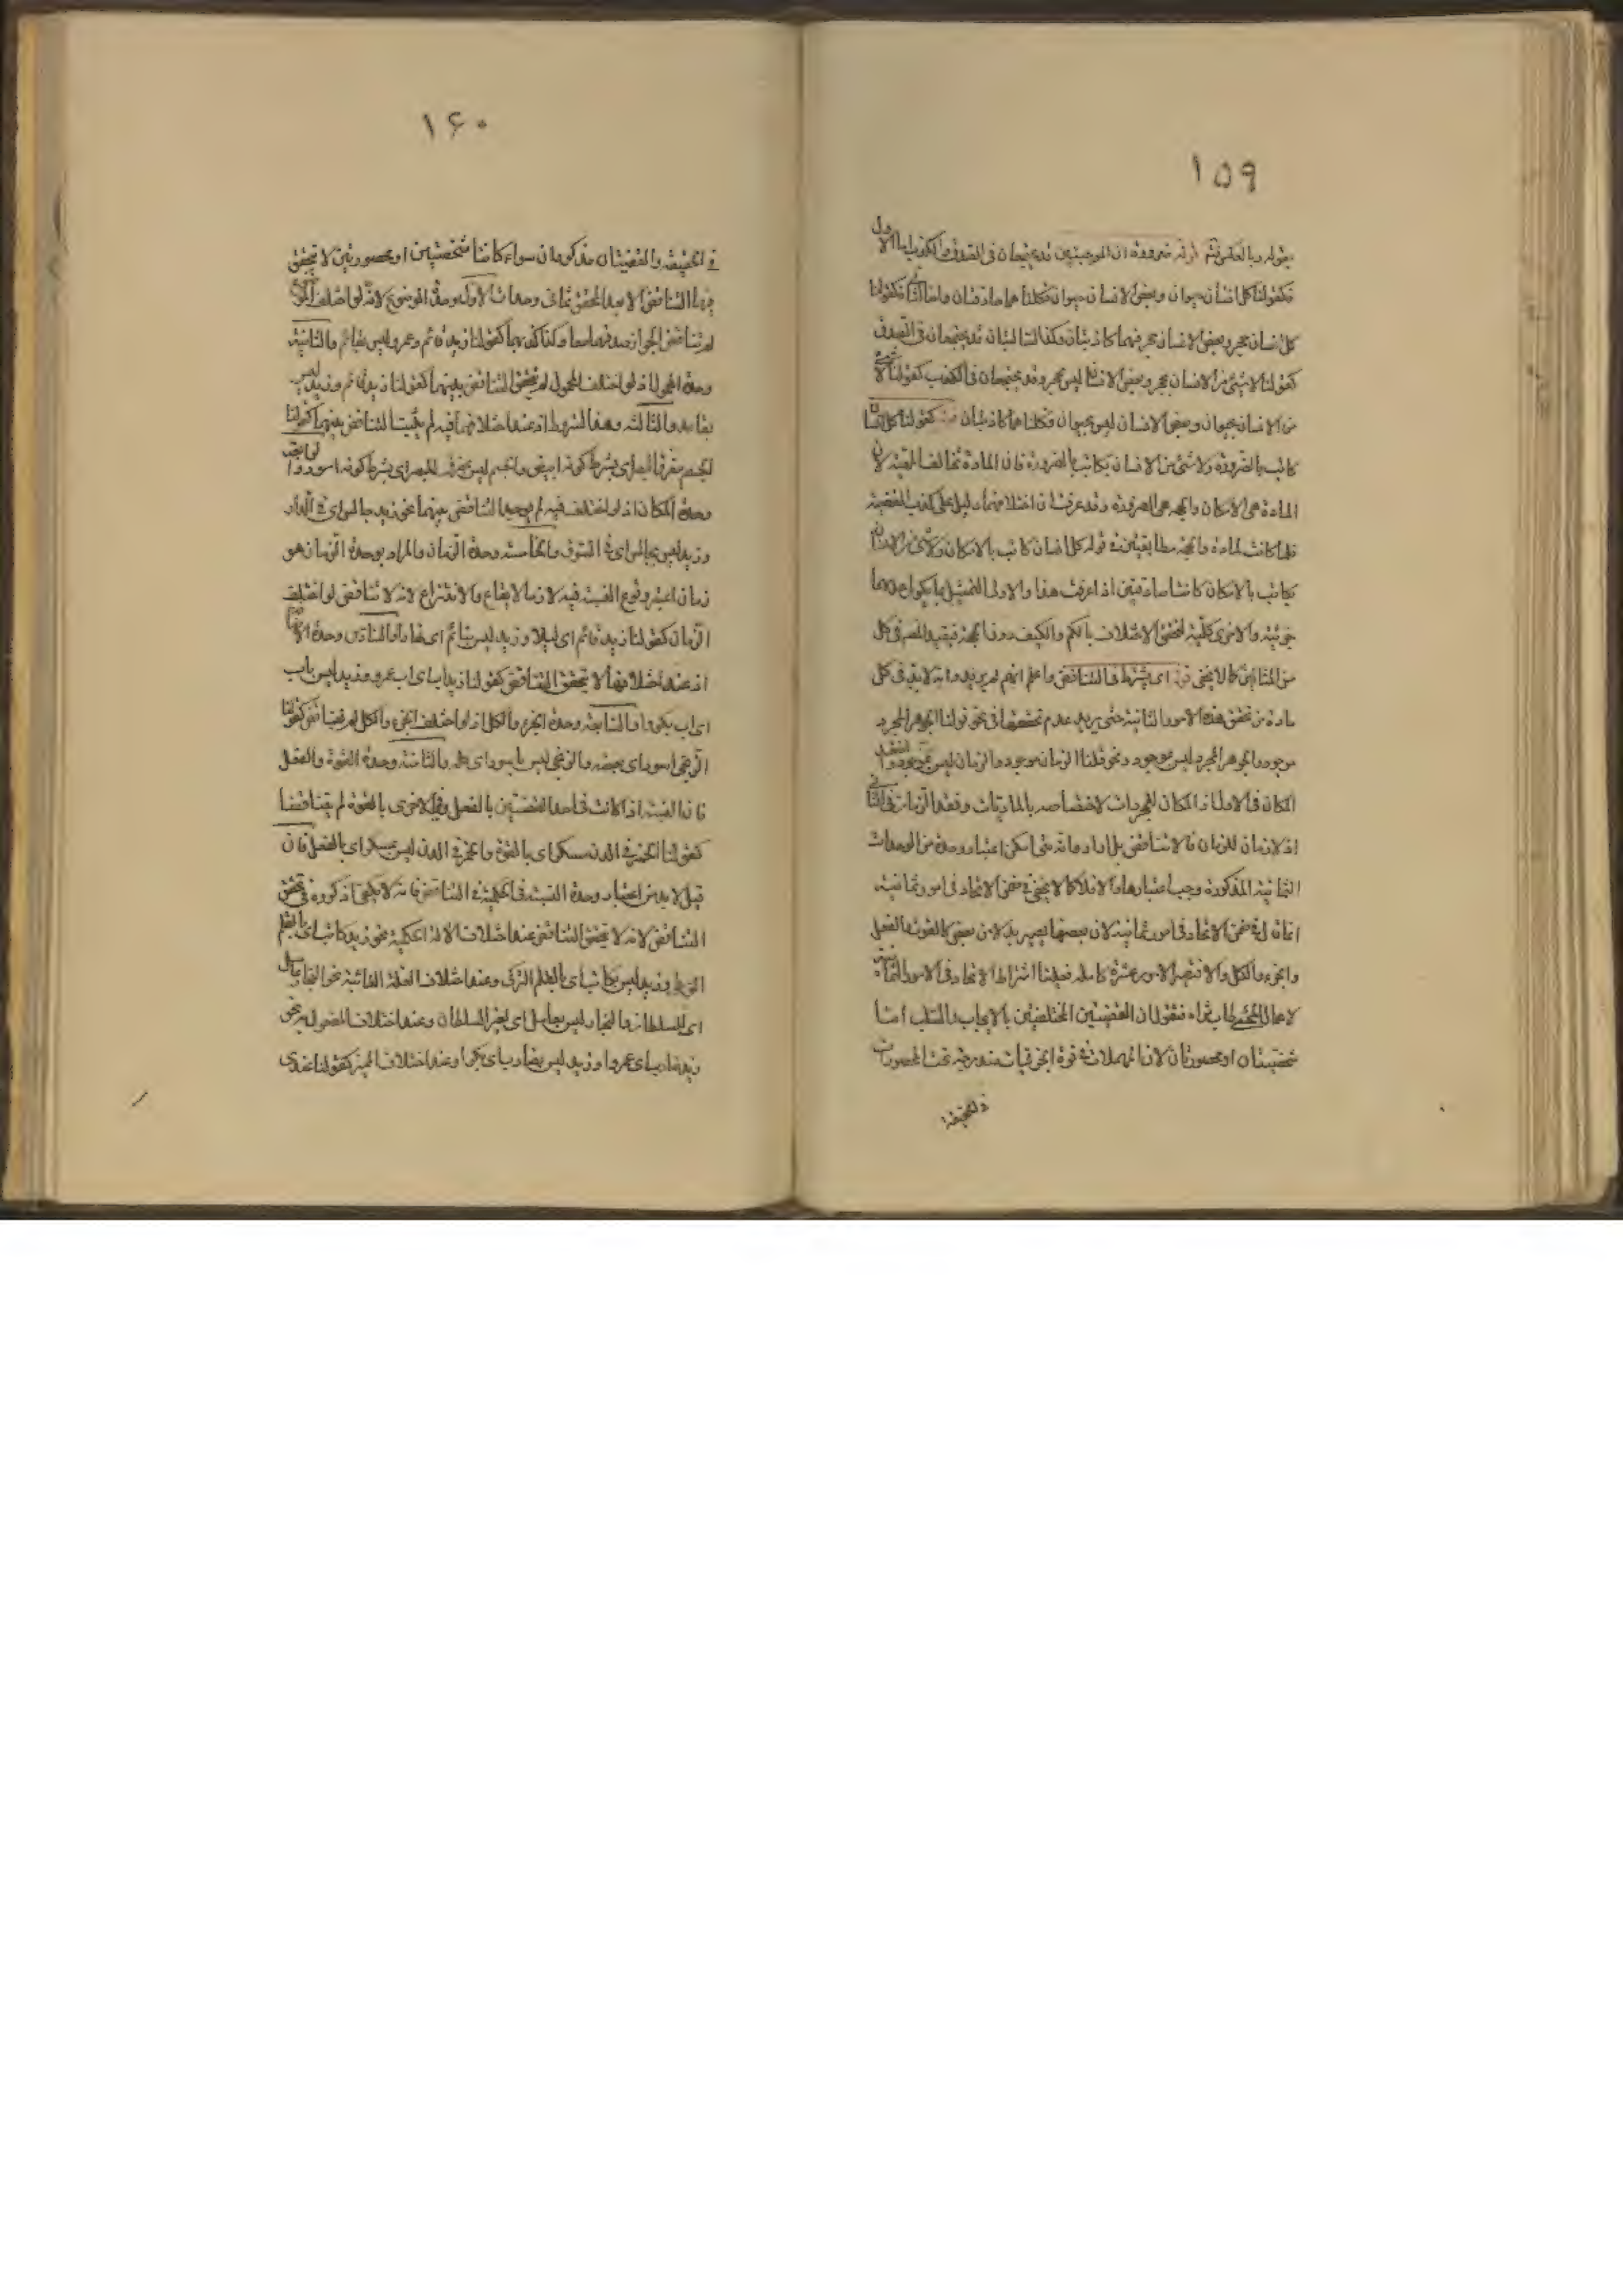 ١٥٩
بقوله وبالعكس فتم قوله ضرورة ان الموجبتين قد يجتمعان فى الصدق والكذب اما الاول
فكقولنا كل انسان حيوان وبعض الانسان حيوان فكلتاهما صادقتان واما الثانى فكقولنا
كل انسان حجر وبعض الانسان حجر فهما كاذبتان وكذا السالبتان قد يجتمعان فى الصدق
كقولنا لا شئ من الانسان بحجر وبعض الانسان ليس بحجر وقد يجتمعان فى الكذب كقولنا لا شئ
من الانسان بحيوان وبعض الانسان ليس بحيوان فكلتاهما كاذبتان كقولنا كل انسان
كاتب بالضرورة ولا شئ من الانسان بكاتب بالضرورة فان المادة تخالف الجهة لان
المادة هى الامكان والجهة هى الضرورة وقد عرفت ان اختلافهما دليل على كذب القضية
فلما كانت المادة والجهة مطابقتين فى قوله كل انسان كاتب بالامكان ولا شئ من الانسان
بكاتب بالامكان كانتا صادقتين اذا عرفت هذا والاولى التمثيل بما يكون احدهما
جزئية والاخرى كلية لتحقق الاختلاف بالكم والكيف دون الجهة فيفيد الحصر فى كل
من المثالين كما لا يخفى قوله اى يشترط فى التناقض واعلم انهم لم يريدوا انه لا بد فى كل
مادة من تحقق هذه الامور الثمانية حتى يرد عدم تحققها فى نحو قولنا الجوهر المجرد
موجود والجوهر المجرد ليس بموجود ونحو قلنا الزمان موجود والزمان ليس بموجود لفقد
المكان فى الاول اذ المكان للمجردات لاختصاصه بالماديات وفقد الزمان فى الثانى
اذ لا زمان للزمان فلا تناقض بل ارادوا انه متى امكن اعتبار وحدة من الوحدات
الثمانية المذكورة وجب اعتبارها والا فلا كما لا يخفى فى ضمن الاتحاد فى امور ثمانية
انما قال فى ضمن الاتحاد فى امور ثمانية لان بعضها يصير بدلا من بعض كالقوة والفعل
والجزء والكل والا فتصير الامور عشرة كاملة فعلينا اشتراط الاتحاد فى الامور الثمانية
لا محالة فنقول ان القضيتين المختلفتين بالايجاب والسلب اما
شخصيتان او محصورتان لان المهملات فى قوة الجزئيات مندرجة تحت المحصورات
فى الحقيقة
١۶٠
فى الحقيقة والقضيتان مذكورتان سواء كانتا شخصيتين او محصورتين لا يتحقق
فيهما التناقض الا بعد تحقق ثمانى وحدات الاول وحدة الموضوع لانه لو اختلف الموضوع
لم يتناقضا لجواز صدقهما معا وكذا كذبهما كقولنا زيد قائم وعمرو ليس بقائم والثانية
وحدة المحمول اذ لو اختلف المحمول لم يتحقق التناقض بينهما كقولنا زيد قائم وزيد ليس
بقاعد والثالثة وحدة الشرط اذ عند اختلافهما فيه لم يثبت التناقض بينهما كقولنا
الجسم مفرق للبصر اى بشرط كونه ابيض والجسم ليس بمفرق للبصر اى بشرط كونه اسود والرابعة
وحدة المكان اذ لو اختلف فيه لم يوجد التناقض بينهما نحو زيد جالس اى فى الدار
وزيد ليس بجالس اى فى السوق والخامسة وحدة الزمان والمراد بوحدة الزمان هو
زمان اعتبر وقوع النسبة فيه لا زمان الايقاع والانتزاع لانه لا تناقض لو اختلف
الزمان كقولنا زيد قائم اى ليلا وزيد ليس بقائم اى نهارا والسادس وحدة الاضافة
اذ عند اختلافها لا يتحقق التناقض كقولنا زيد اب اى اب عمرو وزيد ليس باب
اى اب بكر والسابعة وحدة الجزء والكل اذ لو اختلف الجزء والكل لم يتناقض كقولنا
الزنجى اسود اى بعضه والزنجى ليس باسود اى كله والثامنة وحدة القوة والفعل
فان النسبة اذا كانت فى احد القضيتين بالفعل وفى الاخرى بالقوة لم يتناقضا
كقولنا الخمر فى الدن مسكر اى بالقوة والخمر فى الدن ليس بمسكر اى بالفعل فان
قيل لا بد من اعتبار وحدة النسبة فى الحملية فى التناقض فانه لا يكفى ما ذكروه فى تحقق
التناقض لانه لا يتحقق التناقض عند اختلاف الالة الحكمية نحو زيد كاتب اى بالقلم
وزيد ليس بكاتب اى بالقلم التركى وعند اختلاف العلة الغائية نحو النجار عامل
اى للسلطان والنجار ليس بعامل اى لغير السلطان وعند اختلاف المفعول به نحو
زيد ضارب اى عمروا وزيد ليس بضارب اى بكرا وعند اختلاف المميز كقولنا عندى